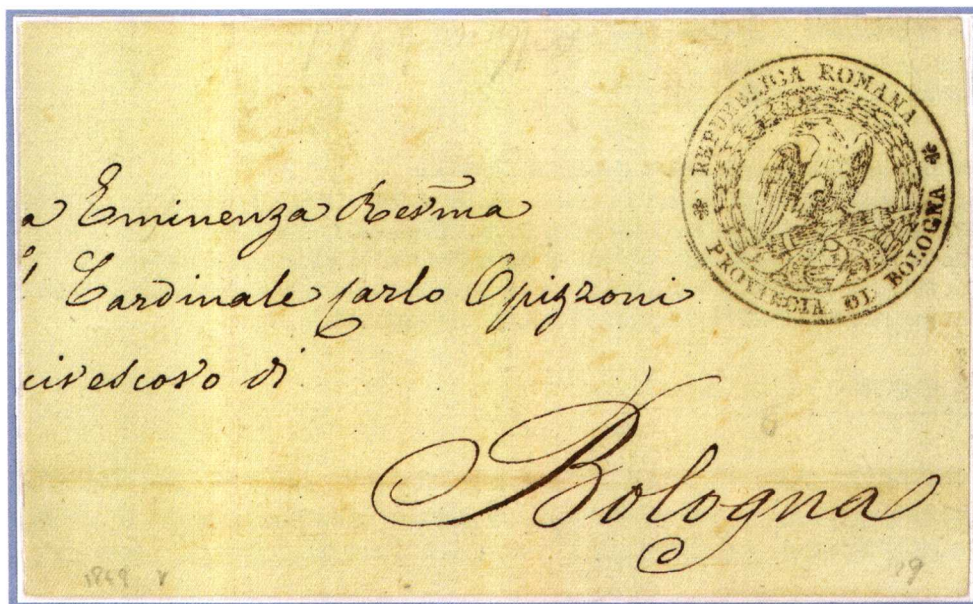 REPUBBLICA ROMANA * PROVINCIA DI BOLOGNA *
a Eminenza Revma
Cardinale Carlo Opizzoni
civescovo di
Bologna
1849
19